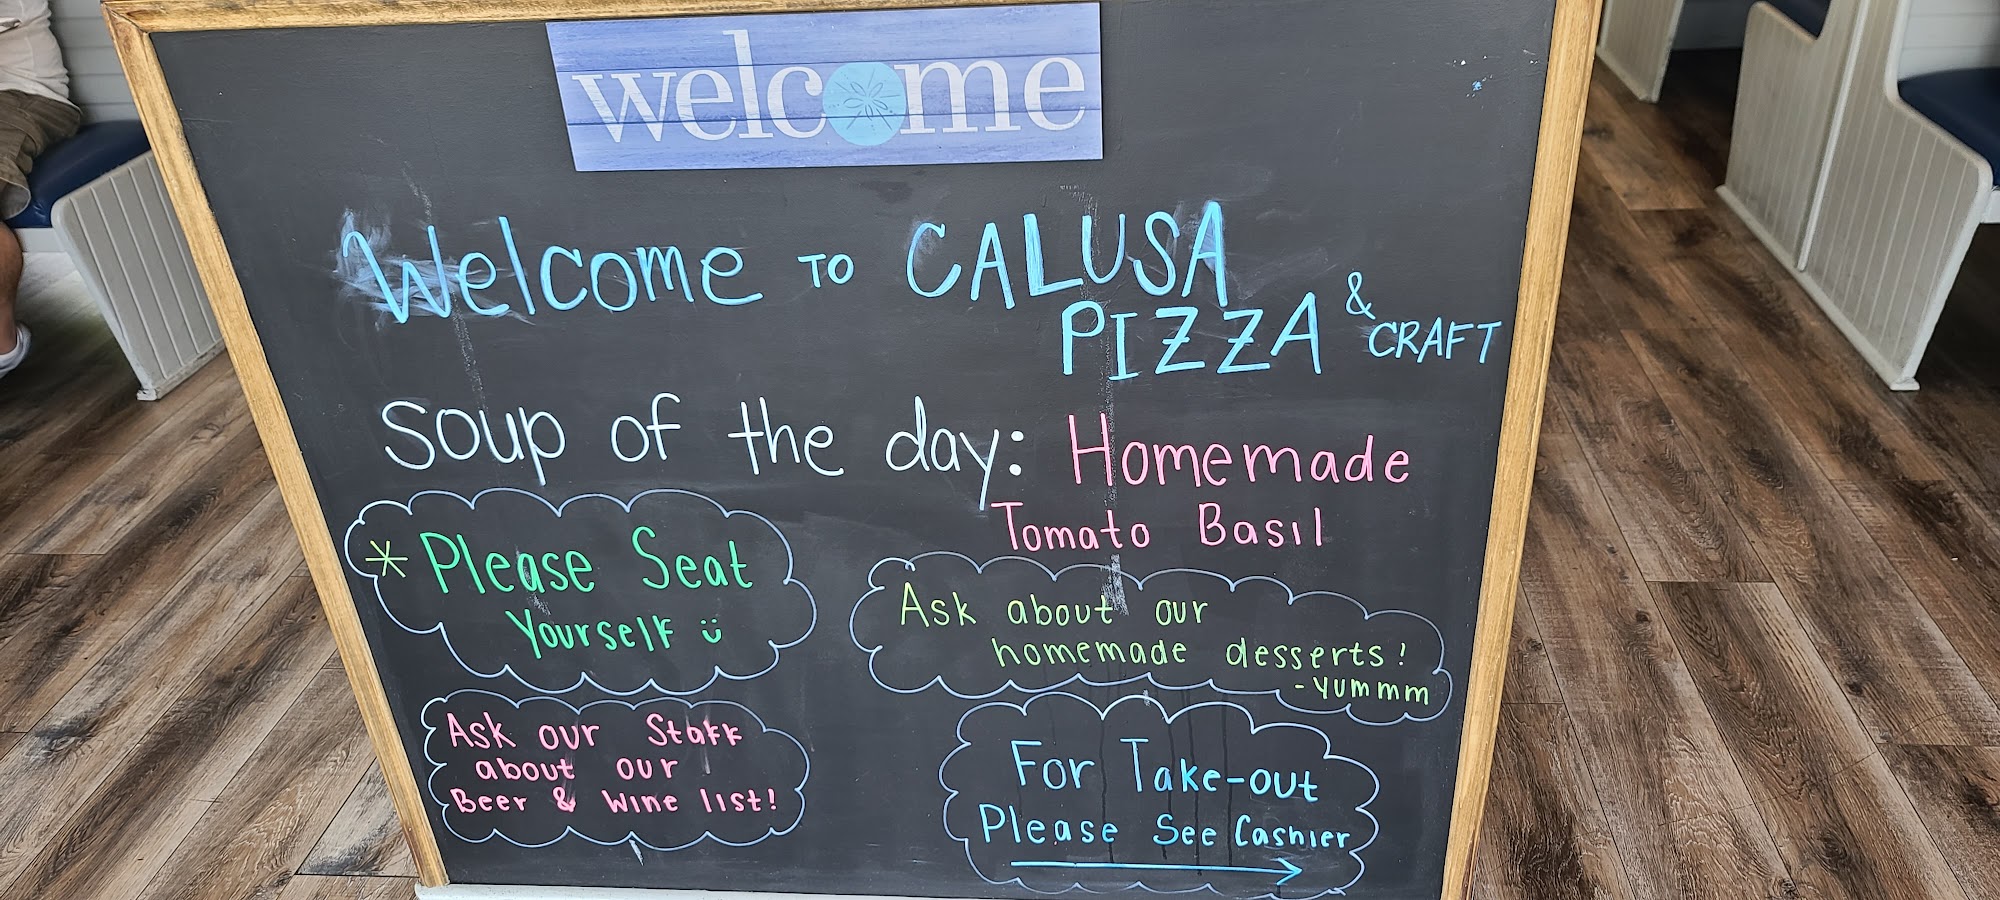 welcome
Welcome TO CALUSA
PIZZA & CRAFT
Soup of the day: Homemade
Tomato Basil
* Please Seat
Yourself
Ask about our
homemade desserts!
- Yummm
Ask our Staff
about our
Beer & Wine list!
For Take-out
Please See Cashier